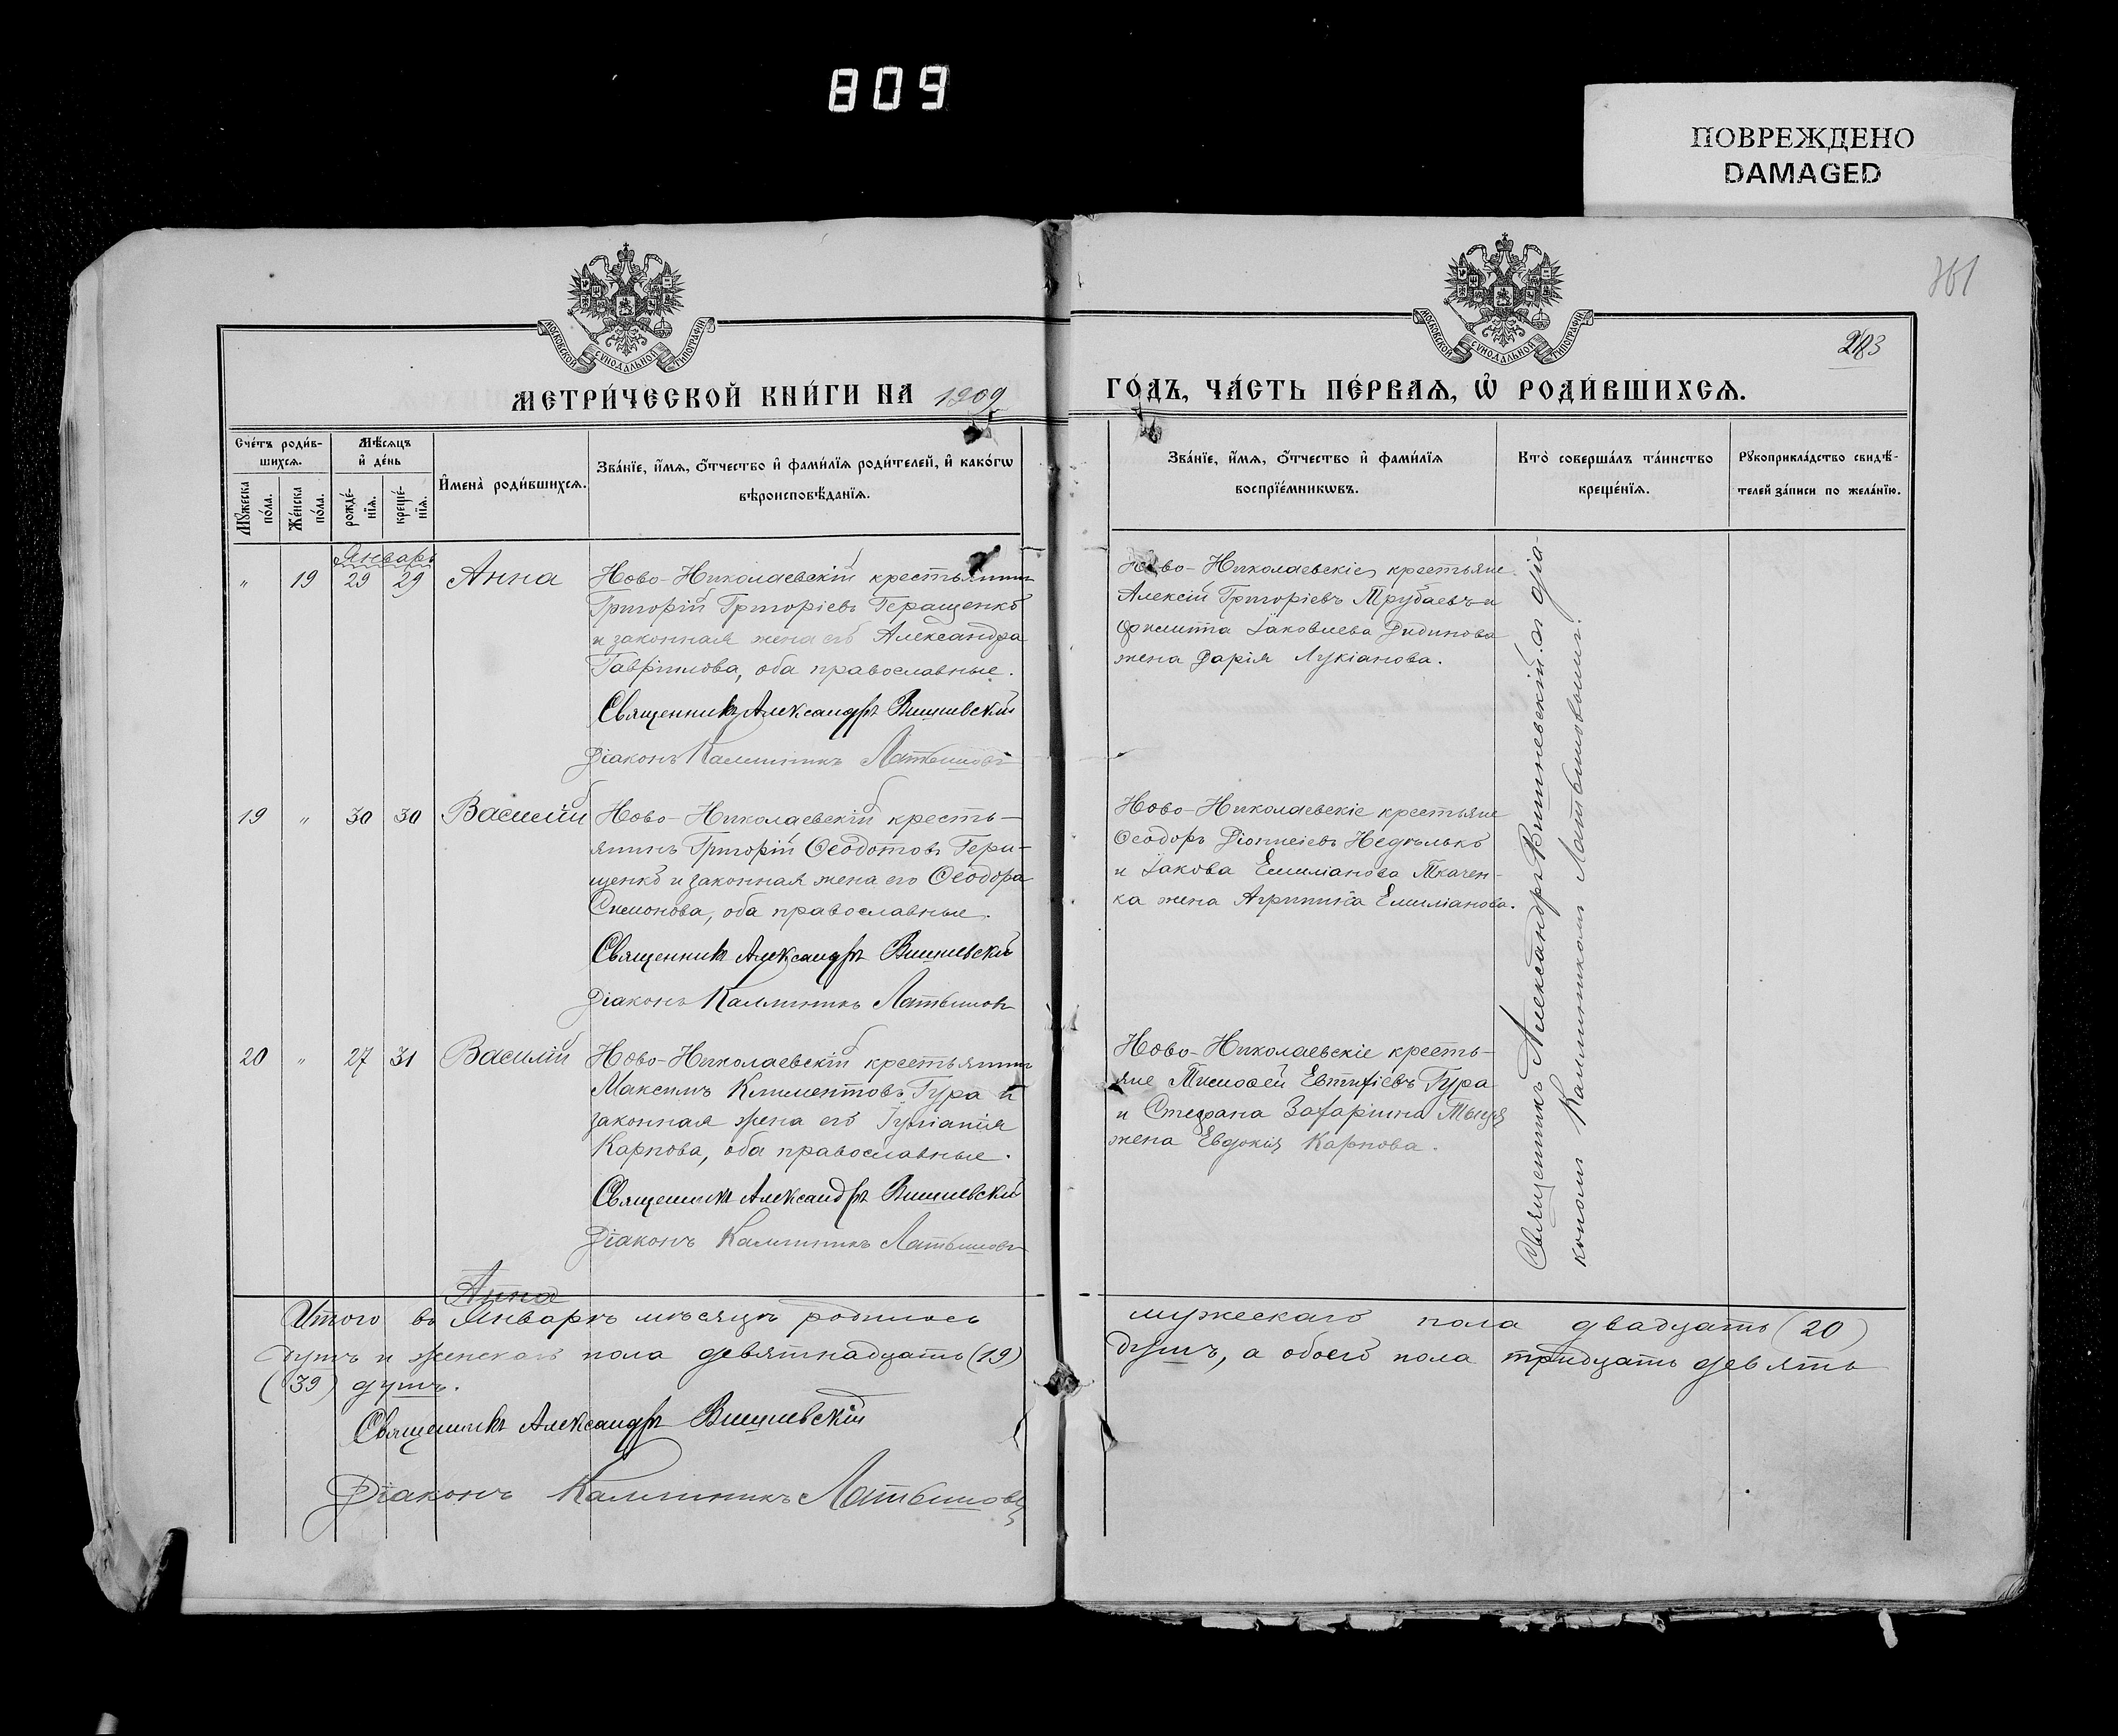 809
ПОВРЕЖДЕНО
DAMAGED
МОСКОВСКОЙ СѴНОДАЛЬНОЙ ТИПОГРАФІИ
МОСКОВСКОЙ СѴНОДАЛЬНОЙ ТИПОГРАФІИ
283
МЕТРИ́ЧЕСКОЙ КНИ́ГИ НА 1909
ГО́ДЪ, ЧА́СТЬ ПЕ́РВАѦ, Ѡ҆ РОДИ́ВШИХСѦ.
Сче́тъ роди́в-
шихсѧ.
Мѣ́сѧцъ
и҆ де́нь
Мꙋ́жеска
по́ла.
Же́нска
по́ла.
рожде́-
нїѧ.
креще́-
нїѧ.
И҆мена̀ роди́вшихсѧ.
Зва́нїе, и҆́мѧ, ѻ҆́тчество и҆ фами́лїѧ роди́телей, и҆ како́гѡ
вѣроисповѣ́данїѧ.
Зва́нїе, и҆́мѧ, ѻ҆́тчество и҆ фами́лїѧ
воспрїе́мникѡвъ.
Кто̀ соверша́лъ та́инство
креще́нїѧ.
Рꙋкоприкла́дство свидѣ́-
телей за́писи по жела́нїю.
Январь
" 19 29 29 Анна
Ново-Николаевскій крестьянинъ
Григорій Григоріевъ Геращенко
и законная жена его Александра
Гавріилова, оба православные.
Священникъ Александръ Вишневскій
Діаконъ Каллиникъ Латышовъ
Ново-Николаевскіе крестьяне
Алексій Григоріевъ Трубаевъ и
Іаковлева Дидинова
жена Дарія Лукіанова.
19 " 30 30 Василій
Ново-Николаевскій кресть-
янинъ Григорій Ѳеодотовъ Гера-
щенко и законная жена его Ѳеодора
Симонова, оба православные.
Священникъ Александръ Вишневскій
Діаконъ Каллиникъ Латышовъ
Ново-Николаевскіе крестьяне
Ѳеодоръ Діонисіевъ Недѣлько
и Іакова Емиліанова Ткачен-
ка жена Агриппина Емиліанова.
20 " 27 31 Василій
Ново-Николаевскій крестьянинъ
Максимъ Климентовъ Гура и
законная жена его Іуліанія
Карпова, оба православные.
Священникъ Александръ Вишневскій
Діаконъ Каллиникъ Латышовъ
Ново-Николаевскіе кресть-
яне Тимоѳей Евтихіевъ Гура
и Стефана Захаріина
жена Евдокія Карпова.
Священникъ Александръ Вишневскій съ діа-
кономъ Каллиникомъ Латышовымъ.
Анна
Итого въ Январѣ мѣсяцѣ родилось
мужескаго пола двадцать (20)
душъ и женскаго пола девятнадцать (19)
душъ, а обоего пола тридцать девять
(39) душъ.
Священникъ Александръ Вишневскій
Діаконъ Каллиникъ Латышовъ